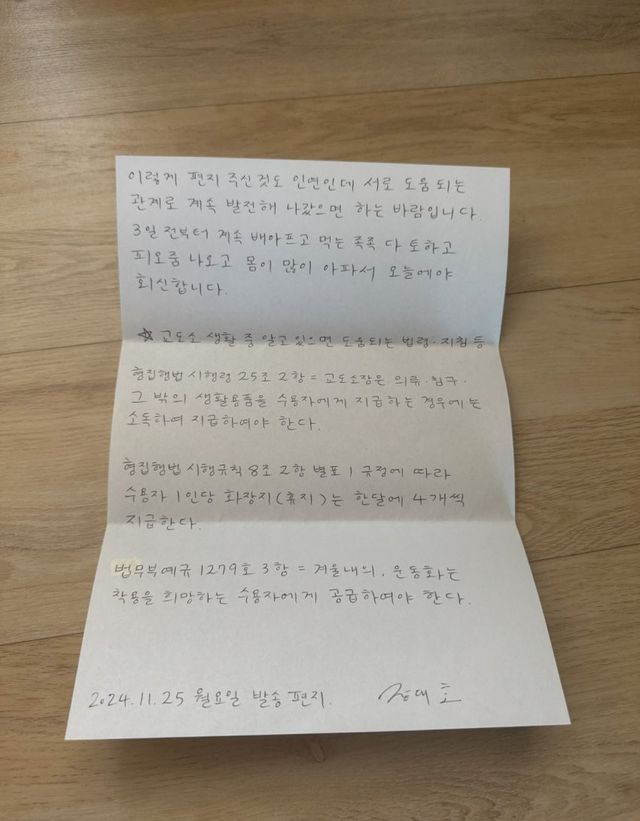 이렇게 편지 주신것도 인연인데 서로 도움 되는
관계로 계속 발전해 나갔으면 하는 바람입니다.
3일 전부터 계속 배아프고 먹는 족족 다 토하고
피오줌 나오고 몸이 많이 아파서 오늘에야
회신합니다.
☆ 교도소 생활 중 알고 있으면 도움되는 법령·지침 등
형집행법 시행령 25조 2항 = 교도소장은 의류·침구·
그 밖의 생활용품을 수용자에게 지급하는 경우에는
소독하여 지급하여야 한다.
형집행법 시행규칙 8조 2항 별표 1 규정에 따라
수용자 1인당 화장지(휴지)는 한달에 4개씩
지급한다.
법무부예규 1279호 3항 = 겨울내의, 운동화는
착용을 희망하는 수용자에게 공급하여야 한다.
2024.11.25 월요일 발송 편지. 대호